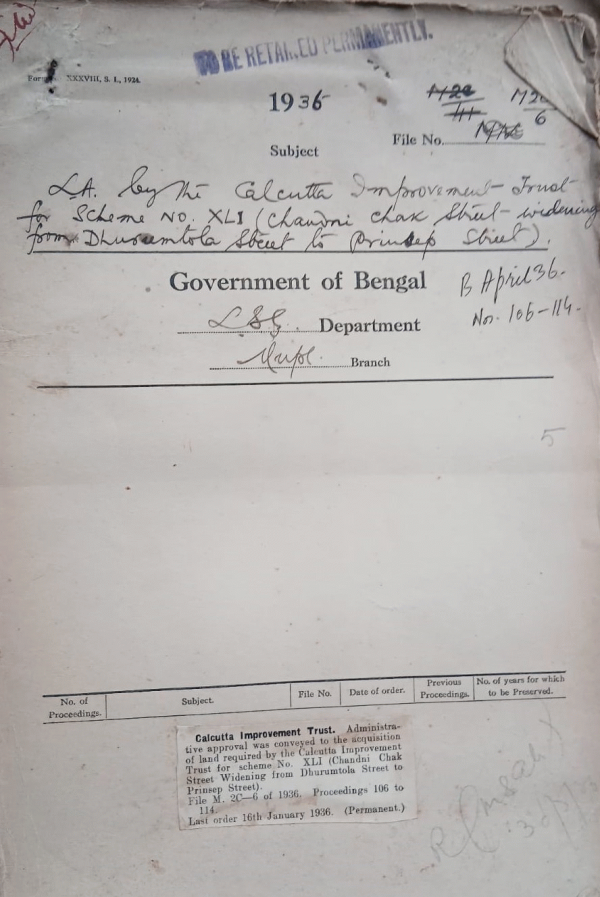 TO BE RETAINED PERMANENTLY.
XXXVIII, S. I., 1924.
1936
Subject
File No.
M 2C
6
L.A. by the Calcutta Improvement Trust
for Scheme No. XLI (Chandni Chak Street widening
from Dhurumtola Street to Prinsep Street).
Government of Bengal
B April 36.
Nos. 106-114.
LSG Department
Branch
5
No. of Proceedings.
Subject.
File No.
Date of order.
Previous Proceedings.
No. of years for which to be Preserved.
Calcutta Improvement Trust. Administra-
tive approval was conveyed to the acquisition
of land required by the Calcutta Improvement
Trust for scheme No. XLI (Chandni Chak
Street Widening from Dhurumtola Street to
Prinsep Street).
File M. 2C—6 of 1936. Proceedings 106 to
114.
Last order 16th January 1936. (Permanent.)